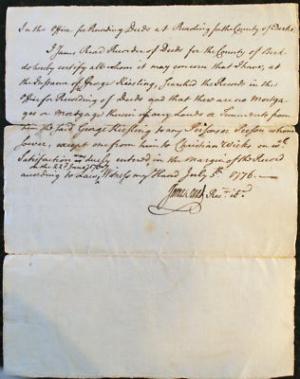 In the Office for Recording Deeds at Reading for the County of Berks
I James Read Recorder of Deeds for the County of Berks
do hereby certify all whom it may concern that I have, at
the Instance of George Kiesling, Searched the Records in this
Office for Recording of Deeds and that there are no Mortga-
ges or Mortgage therein of any Lands or Tenements from
him the said George Kiesling to any Person or Persons whom-
soever, except one from him to Christian Wicks on wch.
Satisfaction is duely entred, in the Margin of the Record
according to Law, Witness my Hand July 5th. 1776.
James Read Recr.